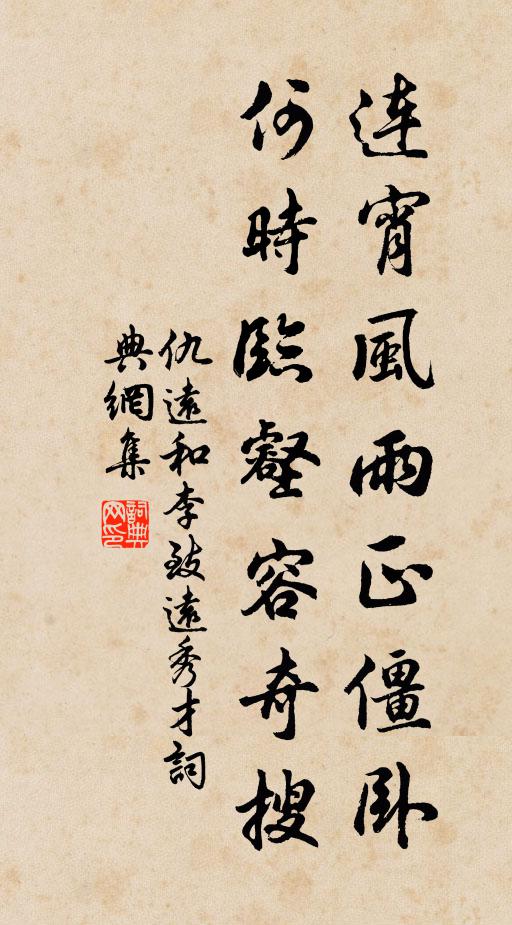 連宵風雨正僵卧
何時臨壑容奇搜
仇遠和李致遠秀才詞
典網集
詞典
網印